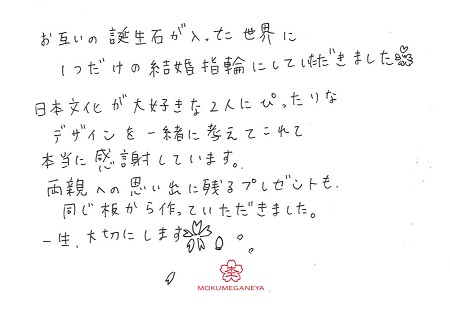 お互いの誕生石が入った世界に
1つだけの結婚指輪にしていただきました
日本文化が大好きな2人にぴったりな
デザインを一緒に考えてくれて
本当に感謝しています。
両親への思い出に残るプレゼントも、
同じ板から作っていただきました。
一生、大切にします
MOKUMEGANEYA